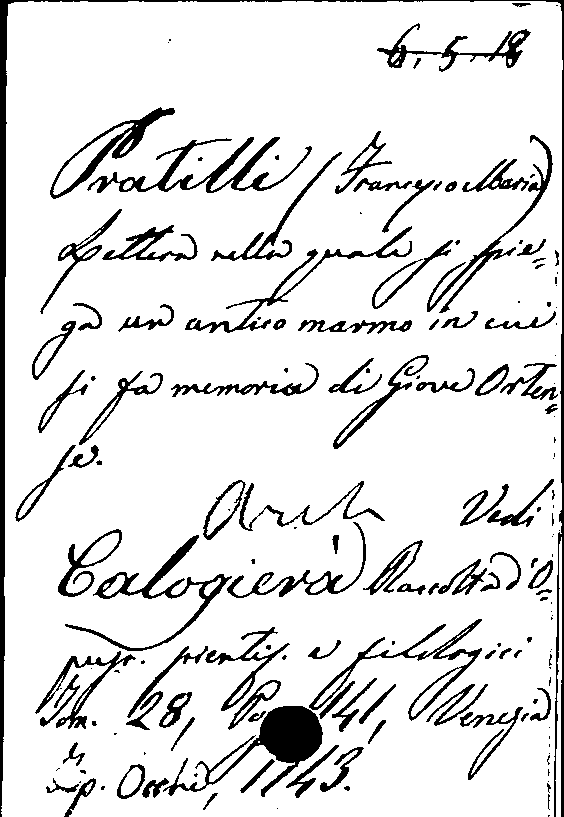 6. 5. 18
Pratilli (Francesco Maria)
Lettera nella quale si spie=
ga un antico marmo in cui
si fa memoria di Giove Orten=
se.
Arch Vedi
Calogierà Raccolta d'O=
pusc. scientif. e filologici
Tom. 28, 141, Venezia
Occhi, 1743.